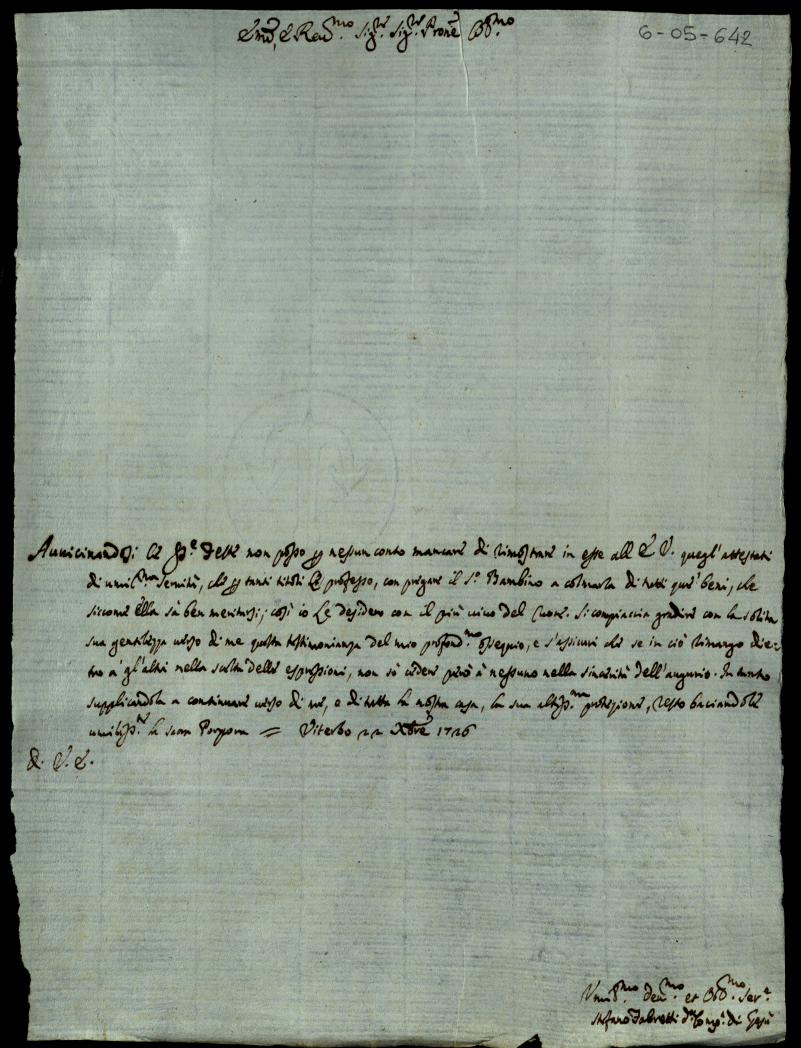 Emo, e Revmo. Sigr. Sigr. Prone Obmo
6-05-642
Avvicinandosi le Ste. Feste non posso p nessun conto mancare di rimostrare in esse all'E V. quegl'attestati
di umilma servitù, che p tanti titoli Le professo, con pregare il Sto. Bambino a colmarla di tutti que' beni, che
siccome ella sà ben meritarsi; così io Le desidero con il più vivo del Cuore. Si compiaccia gradire con la solita
sua gentilezza verso di me questa testimonianza del mio profondmo. ossequio, e s'assicuri che se in ciò rimango die-
tro à gl'altri nella scelta delle espressioni, non sò cedere però à nessuno nella sincerità dell'augurio. In tanto
supplicandola a continuare verso di me, e di tutta la nostra casa, la sua altissma. protezione, resto baciandole
umilissте. la sacra Porpora = Viterbo 22 Xbre 1726
di V. E.
Umilmo. devmo. et Obbmo. Serve.
Stefano Fabretti della Compa. di Gesù